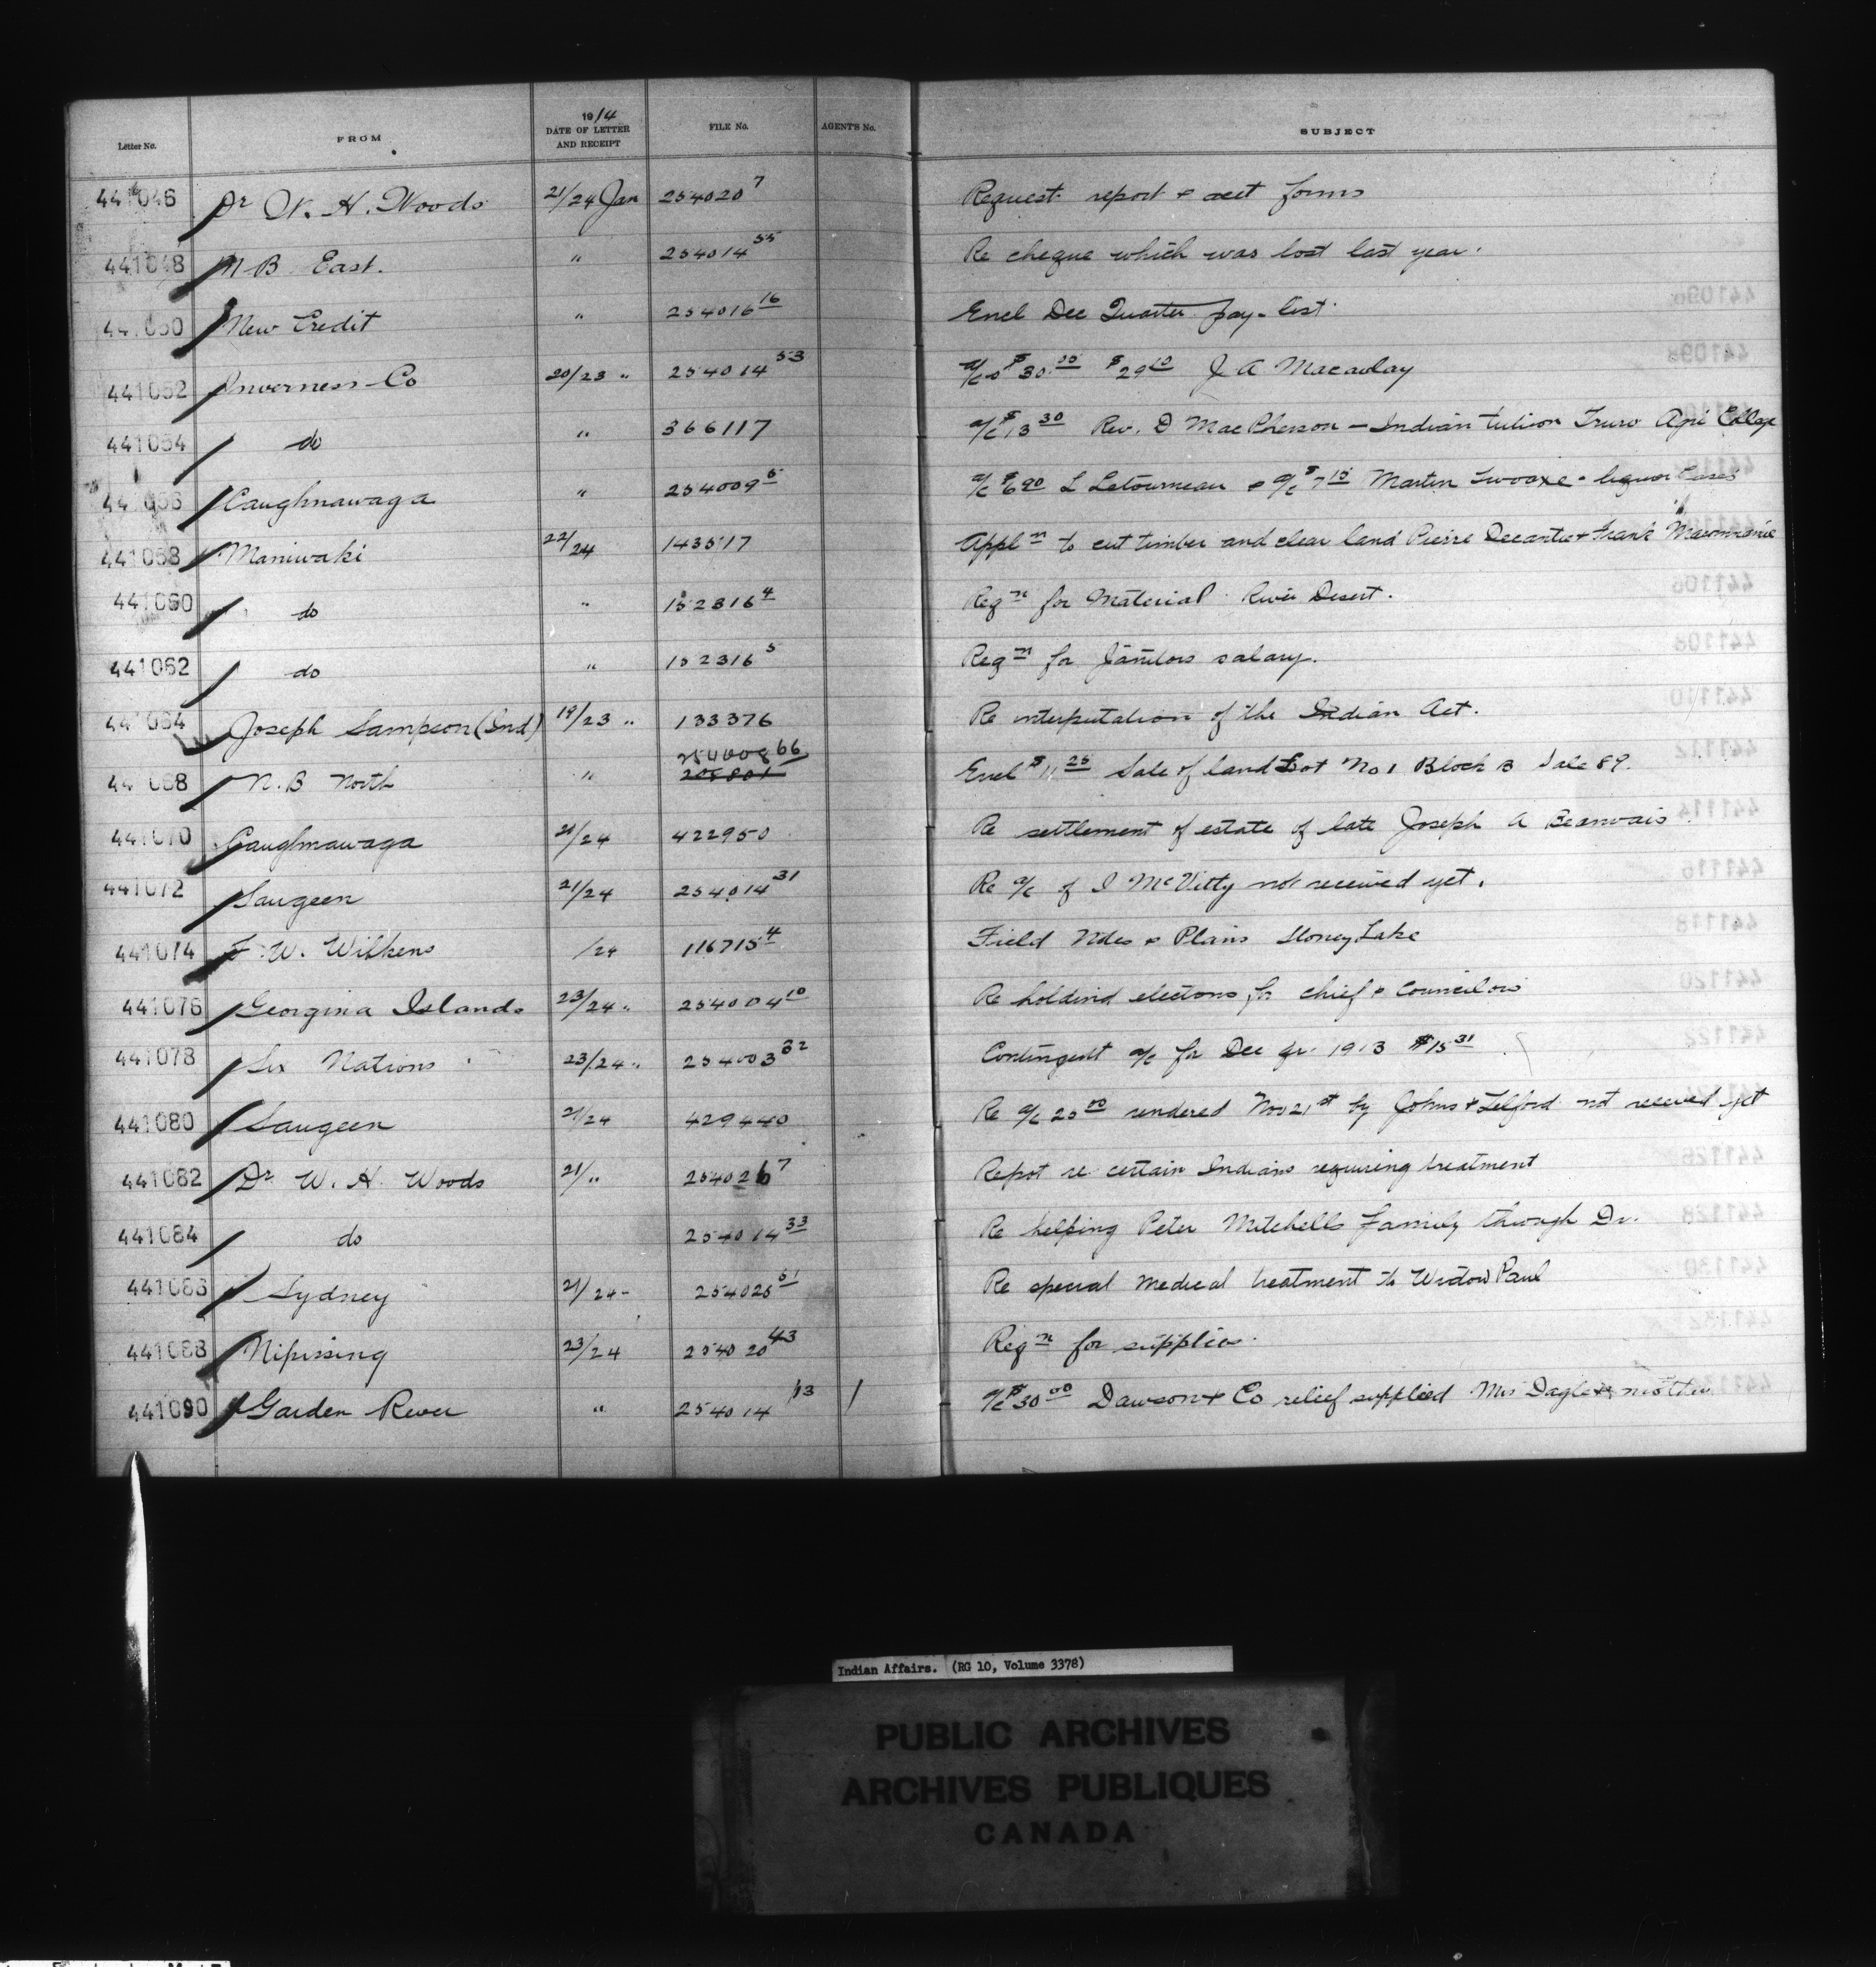 Letter No. FROM 1914 DATE OF LETTER AND RECEIPT FILE No. AGENT'S No. SUBJECT
441046 Dr W. H. Woods 21/24 Jan 254020 7 Request report & acct forms
441048 N B East. " 254014 55 Re cheque which was lost last year.
441050 New Credit " 254016 16 Encl Dec Quarter pay-list.
441052 Inverness Co 20/23 " 254014 53 a/c $30.00 $29 10 J A Macaulay
441054 do " 366117 a/c $13 30 Rev. D MacPherson - Indian tuition Truro Agri College
441056 Caughnawaga " 254009 6 a/c $6 90 L Letourneau & a/c $7 15 Martin Twoaxe - liquor Cases
441058 Maniwaki 22/24 143517 Appl n to cut timber and clear land Pierre Decantie & Frank
441060 do " 152316 4 Reg n for Material River Desert.
441062 do " 152316 5 Reg n for Janitors salary.
441064 Joseph Sampson (Ind) 19/23 " 133376 Re interputation of the Indian Act.
441068 N.B North " 254008 66 Encl $11 25 Sale of land Lot No 1 Block B Sale 89.
441070 Caughnawaga 21/24 422950 Re settlement of estate of late Joseph A Beauvais
441072 Saugeen 21/24 254014 31 Re a/c of I McVitty not received yet.
441074 F. W. Wilkens /24 116715 4 Field Notes & Plans Stoney Lake
441076 Georgina Islands 23/24 " 254004 10 Re holding elections for chief & Councilors
441078 Six Nations 23/24 " 254003 32 Contingent a/c for Dec qr. 1913 $15 31
441080 Saugeen 21/24 429440 Re a/c 25 00 rendered Nov 21 st by Johns & Telford not received yet
441082 Dr W. H. Woods 21/ " 254026 7 Repot re certain Indians requiring treatment
441084 do 254014 33 Re helping Peter Mitchells family through Dr.
441086 Sydney 21/24 - 254026 51 Re special Medical treatment to Widow Paul
441088 Nipissing 23/24 254020 43 Reg n for supplies.
441090 Garden River " 254014 113 / a/c $30 00 Dawson & Co relief supplied Mrs Dagle & mother
Indian Affairs. (RG 10, Volume 3378)
PUBLIC ARCHIVES
ARCHIVES PUBLIQUES
CANADA